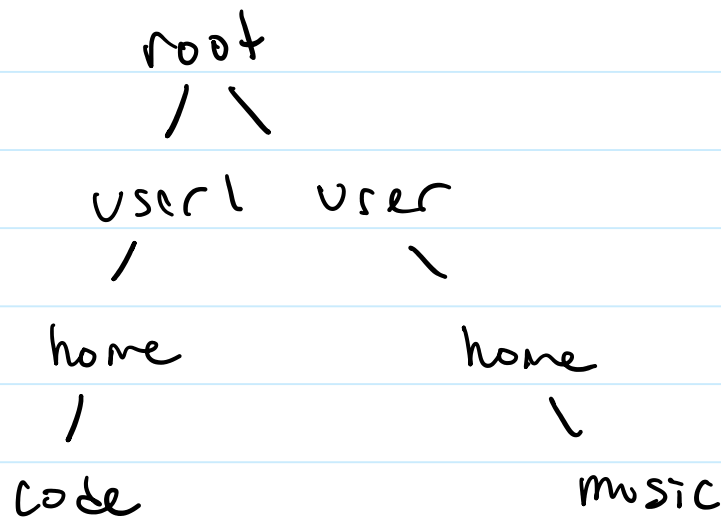 root
user1 user
home home
code music